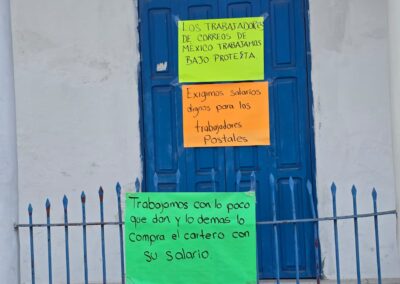 LOS TRABAJADORES
DE CORREOS DE
MEXICO TRABAJAMOS
BAJO PROTESTA
Exigimos salarios
dignos para los
trabajadores
Postales
Trabajamos con lo poco
que dan y lo demas lo
Compra el cartero con
su salario.